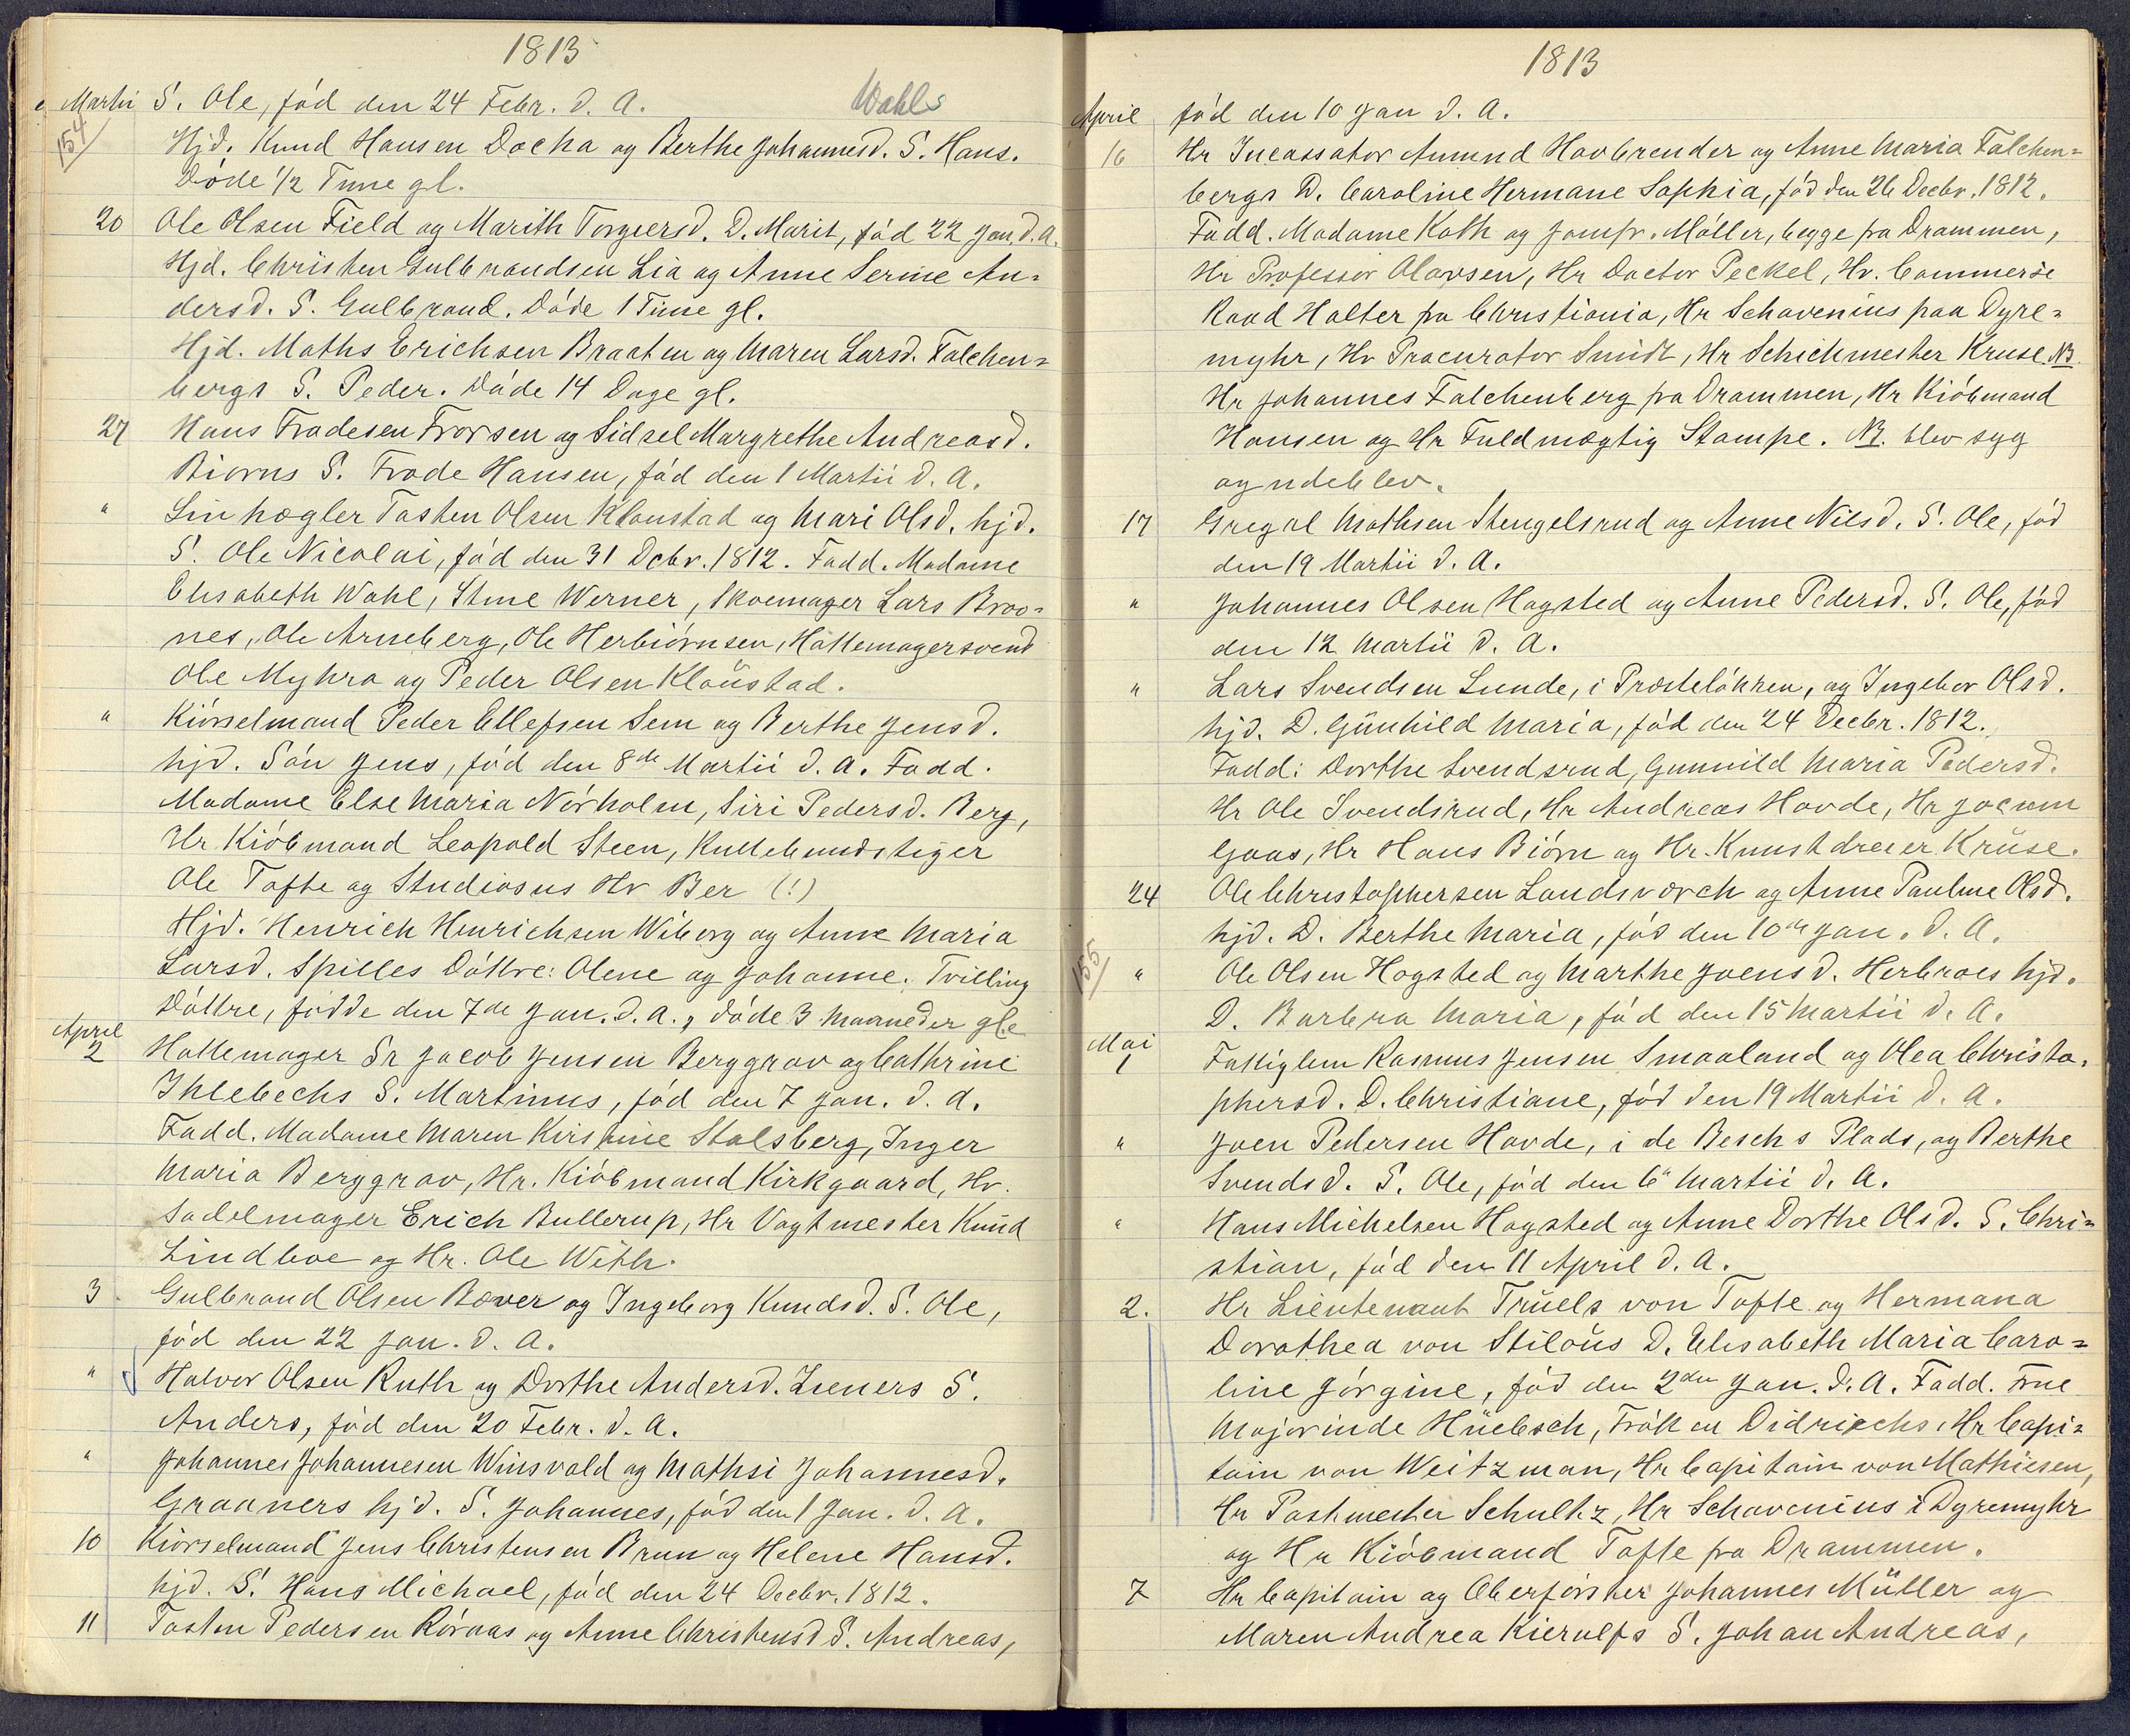 1813
Martii S. Ole, fód den 24 Febr. d. A. Wahls
154 Hjd. Knud Hansen Docka og Berthe Johannesd. S. Hans.
Dóde 1/2 Time gl.
20 Ole Olsen Field og Marith Torgiersd. D. Marit, fód 22 Jan d. A.
Hjd. Christen Gulbrandsen Lia og Anne Serine An=
dersd. S. Gulbrand. Dóde 1 Time gl.
Hjd. Maths Erichsen Braaten og Maren Larsd. Falchen=
bergs S. Peder. Dóde 14 Dage gl.
27 Hans Fradesen Frorsen og Sidsel Margrethe Andreasd.
Biorns S. Frode Hansen, fód den 1 Martii d. A.
" Linhægler Tosten Olsen Kloustad og Mari Olsd. hjd.
S. Ole Nicolai, fód den 31 Dcbr. 1812. Fadd. Madame
Elisabeth Wahl, Stine Werner, Skoemager Lars Broo=
nes, Ole Arneberg, Ole Herbiörnsen, Hattemagersvend
Ole Myhra og Peder Olsen Kloüstad.
" Kiörselmand Peder Ellefsen Sem og Berthe Jensd.
hjd. Són Jens, fód den 8de Martii d. A. Fadd.
Madame Else Maria Nórholm, Siri Pedersd. Berg,
Hr Kióbmand Leopold Steen, Kullebundstiger
Ole Tofte og Studiosus Hr Ber (!)
Hjd. Henrich Henrichsen Wiborg og Anne Maria
Larsd. Spilles Dóttre: Olene og Johanne. Tvilling
Dóttre, fódde den 7de Jan. d. A., dóde 3 Maaneder gle
April
2 Hattemager Sr Jacob Jensen Berggrav og Cathrine
Ihlebechs S. Martinus, fód den 7 Jan. d. A.
Fadd. Madame Maren Kirstine Stalsberg, Inger
Maria Berggrav, Hr. Kióbmand Kirkgaard, Hr.
Sadelmager Erich Bullerup, Hr Vagtmester Knüd
Lindboe og Hr. Ole With.
3 Gulbrand Olsen Bæver og Ingeborg Knudsd. S. Ole,
fód den 22 Jan. d. A.
" Halvor Olsen Ruth og Dorthe Andersd. Zieners S.
Anders, fód den 20 Febr. d. A.
" Johannes Johannesen Winsvold og Mathsi Johannesd.
Graaners hjd. S. Johannes, fód den 1 Jan. d. A.
10 Kiörselmand Jens Christensen Brun og Helene Hansd.
hjd. S. Hans Michael, fód den 24 Decbr. 1812.
11 Tosten Pedersen Róraas og Anne Christensd S. Andreas,
1813
April fód den 10 Jan d. A.
16 Hr Incassator Amund Havbrender og Anne Maria Falchen=
bergs D. Caroline Hermane Sophia, fód den 26 Decbr. 1812.
Fadd. Madame Koth og Jomfr. Móller, begge fra Drammen,
Hr Professor Olavsen, Hr Doctor Peckel, Hr. Commerse
Raad Holter fra Christiania, Hr Schavenius paa Dyre=
myhr, Hr Procurator Smidt, Hr Schichmester Kruse. NB.
Hr Johannes Falchenberg fra Drammen, Hr Kióbmand
Hansen og Hr Fuldmægtig Stampe. NB. blev syg
og udeblev.
17 Gregol Mathsen Stengelsrud og Anne Nilsd. S. Ole, fód
den 19 Martii d. A.
" Johannes Olsen Hagsted og Anne Pedersd. S. Ole, fód
den 12 Martii d. A.
" Lars Svendsen Lunde, i Prostelókken, og Ingebor Olsd.
hjd. D. Günhild Maria, fód den 24 Decbr. 1812.
Fadd: Dorthe Svendsrud, Gunnild Maria Pedersd.
Hr Ole Svendsrud, Hr Andreas Hovde, Hr Jocum
Goas, Hr Hans Biörn og Hr. Kunstdreier Krüse.
24 Ole Christophersen Landsværch og Anne Pauline Olsd.
hjd. D. Berthe Maria, fód den 10de Jan. d. A.
155 " Ole Olsen Hogsted og Marthe Joensd. Herbroes hjd.
D. Barbra Maria, fód den 15 Martii d. A.
Mai
1 Fattiglem Rasmus Jensen Smaaland og Olea Christo=
phersd. D. Christiane, fód den 19 Martii d. A.
" Joen Pedersen Hovde, i de Beschs Plads, og Berthe
Svendsd. S. Ole, fód den 6" Martii d. A.
" Hans Michelsen Hagsted og Anne Dorthe Olsd. S. Chri=
stian, fód den 11 April d. A.
2. Hr Lieutenant Trüels von Tofte og Hermana
Dorothea von Stiloüs D. Elisabeth Maria Caro=
line Jórgine, fód den 2den Jan. d. A. Fadd. Frue
Majorinde Hüebsch, Frókken Didriechs, Hr Capi=
tain von Weitzman, Hr Capitain von Mathiesen,
Hr Postmester Schultz, Hr Schavenius i Dyremyhr
og Hr Kióbmand Tofte fra Drammen.
7 Hr Capitain og Oberförster Johannes Müller og
Maren Andrea Kierulfs S. Johan Andreas,